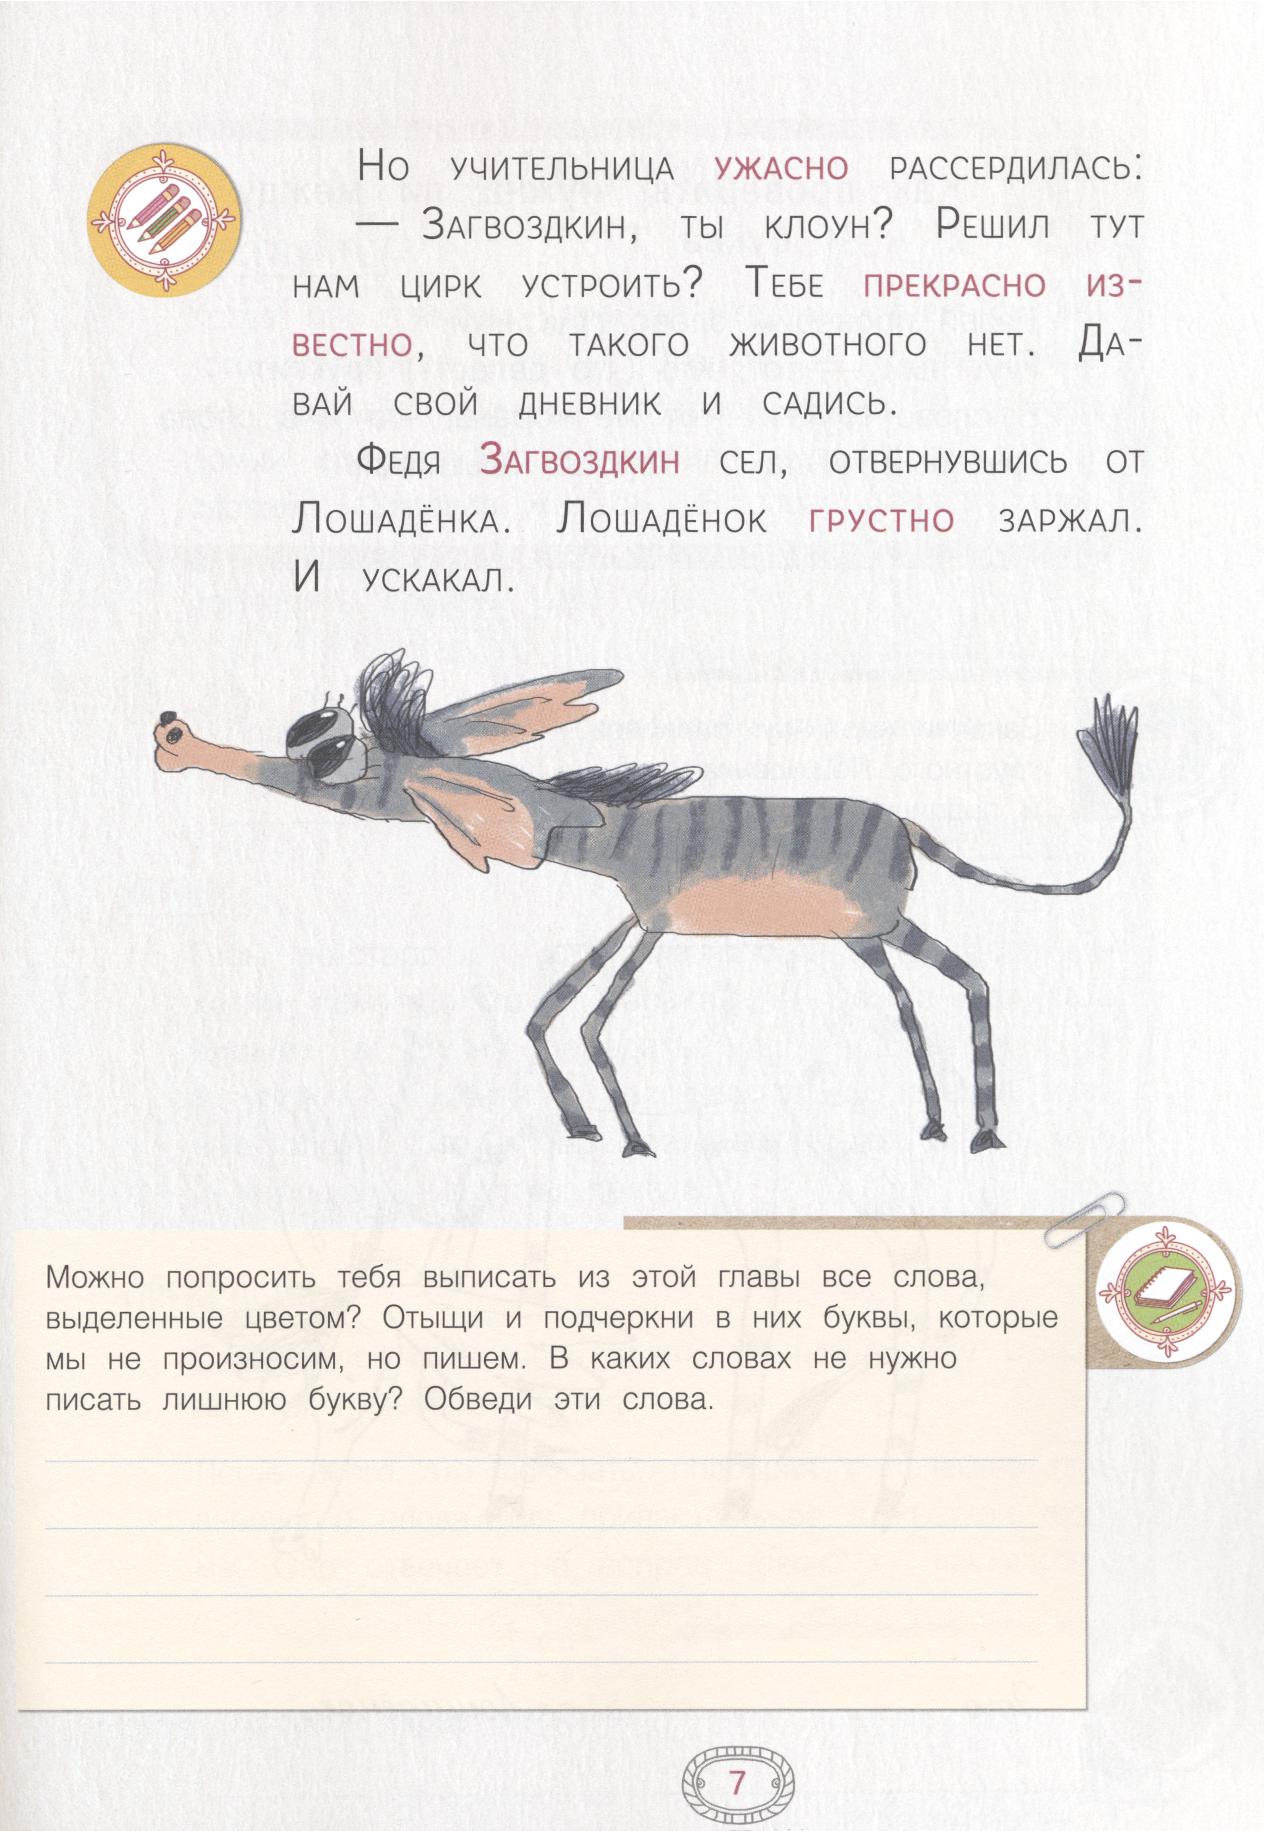 Но учительница ужасно рассердилась:
— Загвоздкин, ты клоун? Решил тут
нам цирк устроить? Тебе прекрасно из-
вестно, что такого животного нет. Да-
вай свой дневник и садись.
Федя Загвоздкин сел, отвернувшись от
Лошадёнка. Лошадёнок грустно заржал.
И ускакал.
Можно попросить тебя выписать из этой главы все слова,
выделенные цветом? Отыщи и подчеркни в них буквы, которые
мы не произносим, но пишем. В каких словах не нужно
писать лишнюю букву? Обведи эти слова.
7